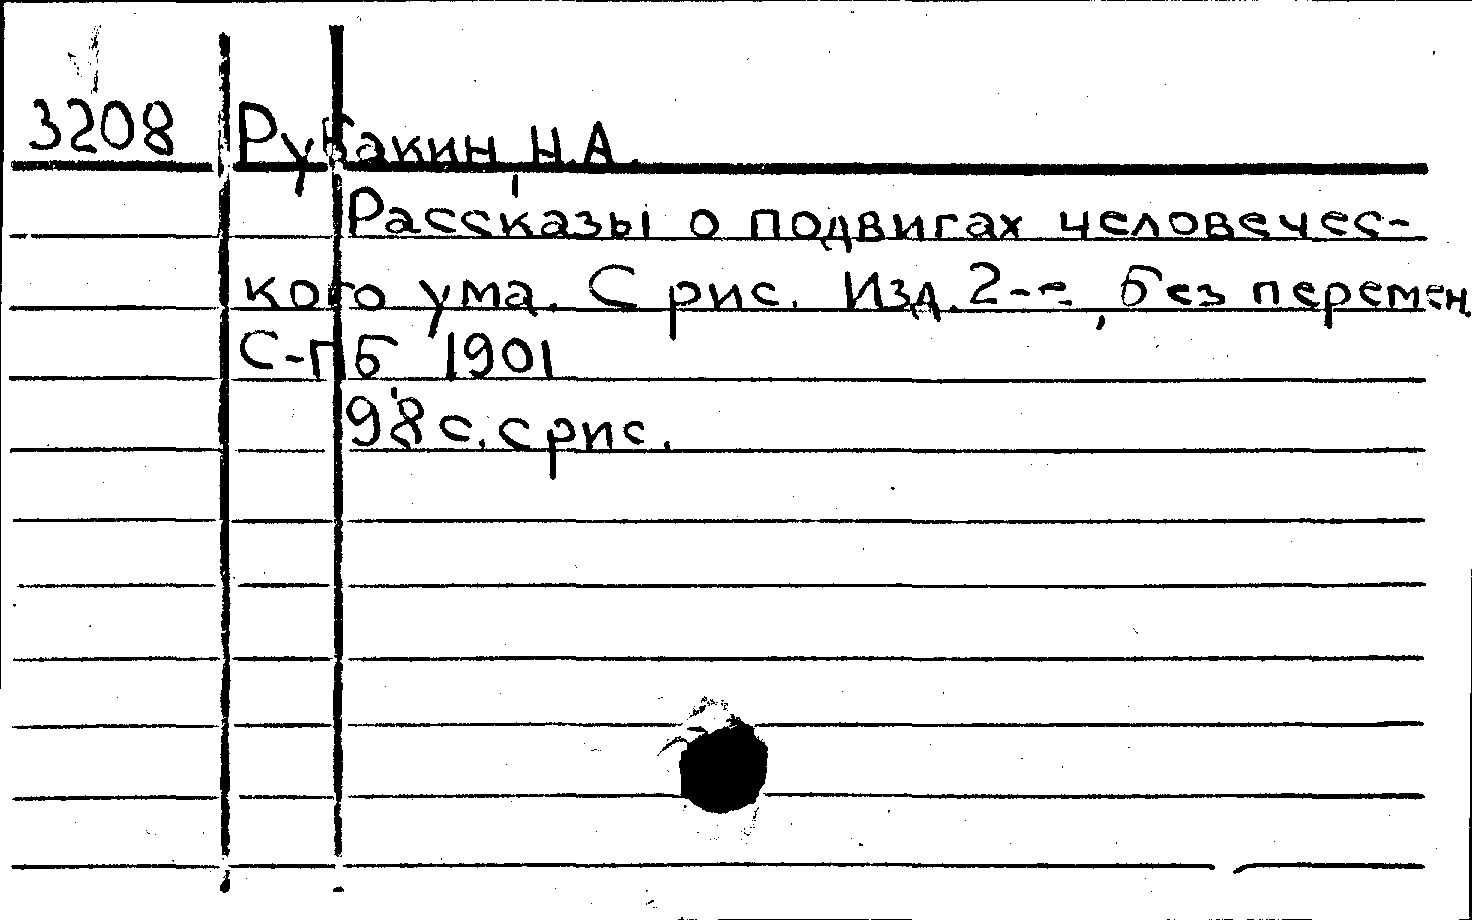 3208 Рубакин, Н.А.
Рассказы о подвигах человечес-
кого ума. С рис. Изд. 2-е, без перемен.
С-Пб, 1901
98 с. с рис.